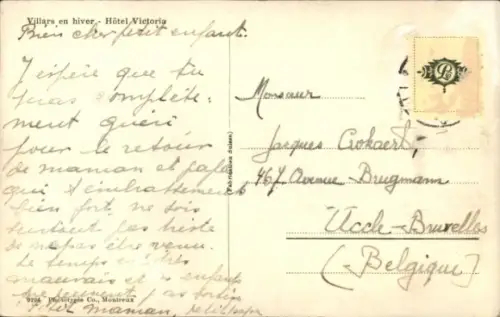 Villars en hiver. - Hôtel Victoria
Bien cher petit enfant.
J'espère que tu
complète-
ment guéri
pour le retour
de maman et papa
qui t'embrassent
bien fort, ne sois
surtout pas triste
de
être venu.
Le temps est très
mauvais et enfants
ne peuvent pas sortir
maman,
9724 Phototypie Co., Montreux
(Fabrication suisse).
Monsieur
Jacques Crokaert,
467 Avenue Brugmann
Uccle-Bruxelles
(Belgique)